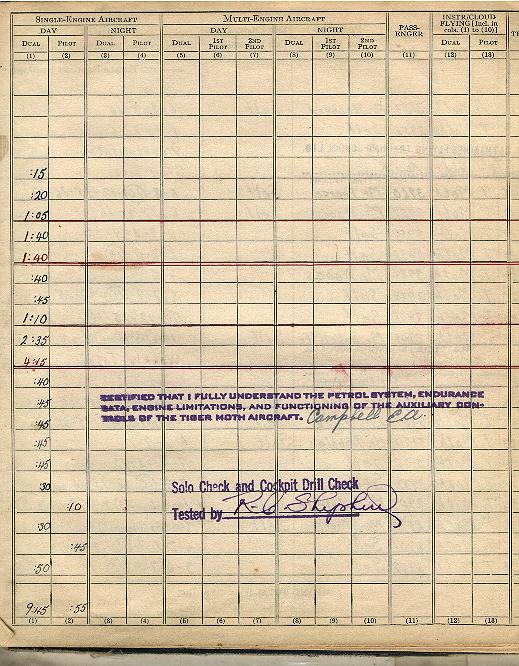 SINGLE-ENGINE AIRCRAFT MULTI-ENGINE AIRCRAFT PASS-ENGER INSTR/CLOUD FLYING [Incl. in cols. (1) to (10)]
DAY NIGHT DAY NIGHT
DUAL PILOT DUAL PILOT DUAL 1ST PILOT 2ND PILOT DUAL 1ST PILOT 2ND PILOT DUAL PILOT
(1) (2) (3) (4) (5) (6) (7) (8) (9) (10) (11) (12) (13)
:15
:20
1:05
1:40
1:40
:40
:45
1:10
2:35
4:15
:40
:45
CERTIFIED THAT I FULLY UNDERSTAND THE PETROL SYSTEM, ENDURANCE
DATA, ENGINE LIMITATIONS, AND FUNCTIONING OF THE AUXILIARY CON-
TROLS OF THE TIGER MOTH AIRCRAFT. Campbell C.A.
:45
:45
:45
:30
Solo Check and Cockpit Drill Check
:10
Tested by
:30
:45
:50
9:45 :55
(1) (2) (3) (4) (5) (6) (7) (8) (9) (10) (11) (12) (13)